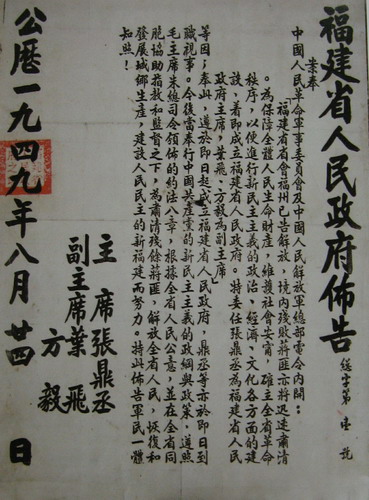 福建省人民政府佈告
字第壹號
案奉
中國人民革命軍事委員會及中國人民解放軍總部電令內開:
「福建省省會福州已告解放,境內殘敗蔣匪亦將迅速肅清
。為保障全體人民生命財產,維護社會安寧,確立全省革命
秩序,以便進行新民主主義的政治、經濟、文化各方面的建
設,着即成立福建省人民政府。特委任張鼎丞為福建省人民
政府主席,葉飛、方毅為副主席」
等因;奉此,遵於即日起成立福建省人民政府,鼎丞等亦於即日到
職視事。今後當奉行中國共產黨的新民主主義的政綱與政策,遵照
毛主席朱總司令頒佈的約法八章,根據全省人民公意,並在全省同
胞協助指教和監督之下,為肅清殘餘蔣匪,解放全省人民,恢復和
發展城鄉生產,建設人民民主的新福建而努力。特此佈告軍民一體
知照!
主席張鼎丞
副主席葉飛
方毅
公曆一九四九年八月廿四日